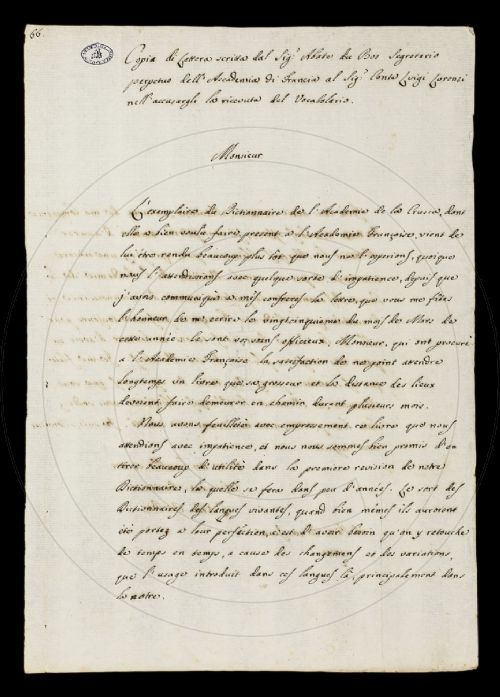 66.
Copia di Lettera scritta dal Sig.r Abate du Bos Segretario
perpetuo dell'Accademia di Francia al Sig.r Conte Luigi Lorenzi
nell'accusargli la ricevuta del Vocabolario.
Monsieur
L'exemplaire du Dictionnaire de l'Academie de la Crusca, dont
elle a bien voulu faire present a l'Academie Françoise, vient de
lui être rendu beaucoup plus tôt que nous ne l'esperions, quoique
nous l'attendissions avec quelque sorte d'impatience, depuis que
j'avois communiqué a mes confreres la lettre, que vous me fites
l'honneur de m'ecrire le vingtcinquieme du mois de Mars de
cette année. Ce sont vos soins officieux, Monsieur, qui ont procuré
a l'Academie Françoise la satisfaction de ne point attendre
longtemps un livre que sa grosseur et la distance des lieux
devoient faire demeurer en chemin durant plusieurs mois.
Nous avons feuilleté avec empressement ce livre que nous
attendions avec impatience, et nous nous sommes bien promis d'en
tirer beaucoup d'utilité dans la premiere revision de notre
Dictionnaire, la quelle se fera dans peu d'années. Le sort des
Dictionnaires des langues vivantes, quand bien même ils auroient
été portez a leur perfection, c'est d'avoir besoin qu'on y retouche
de temps en temps, a cause des changemens et des variations,
que l'usage introduit dans ces langues là, principalement dans
la nôtre.